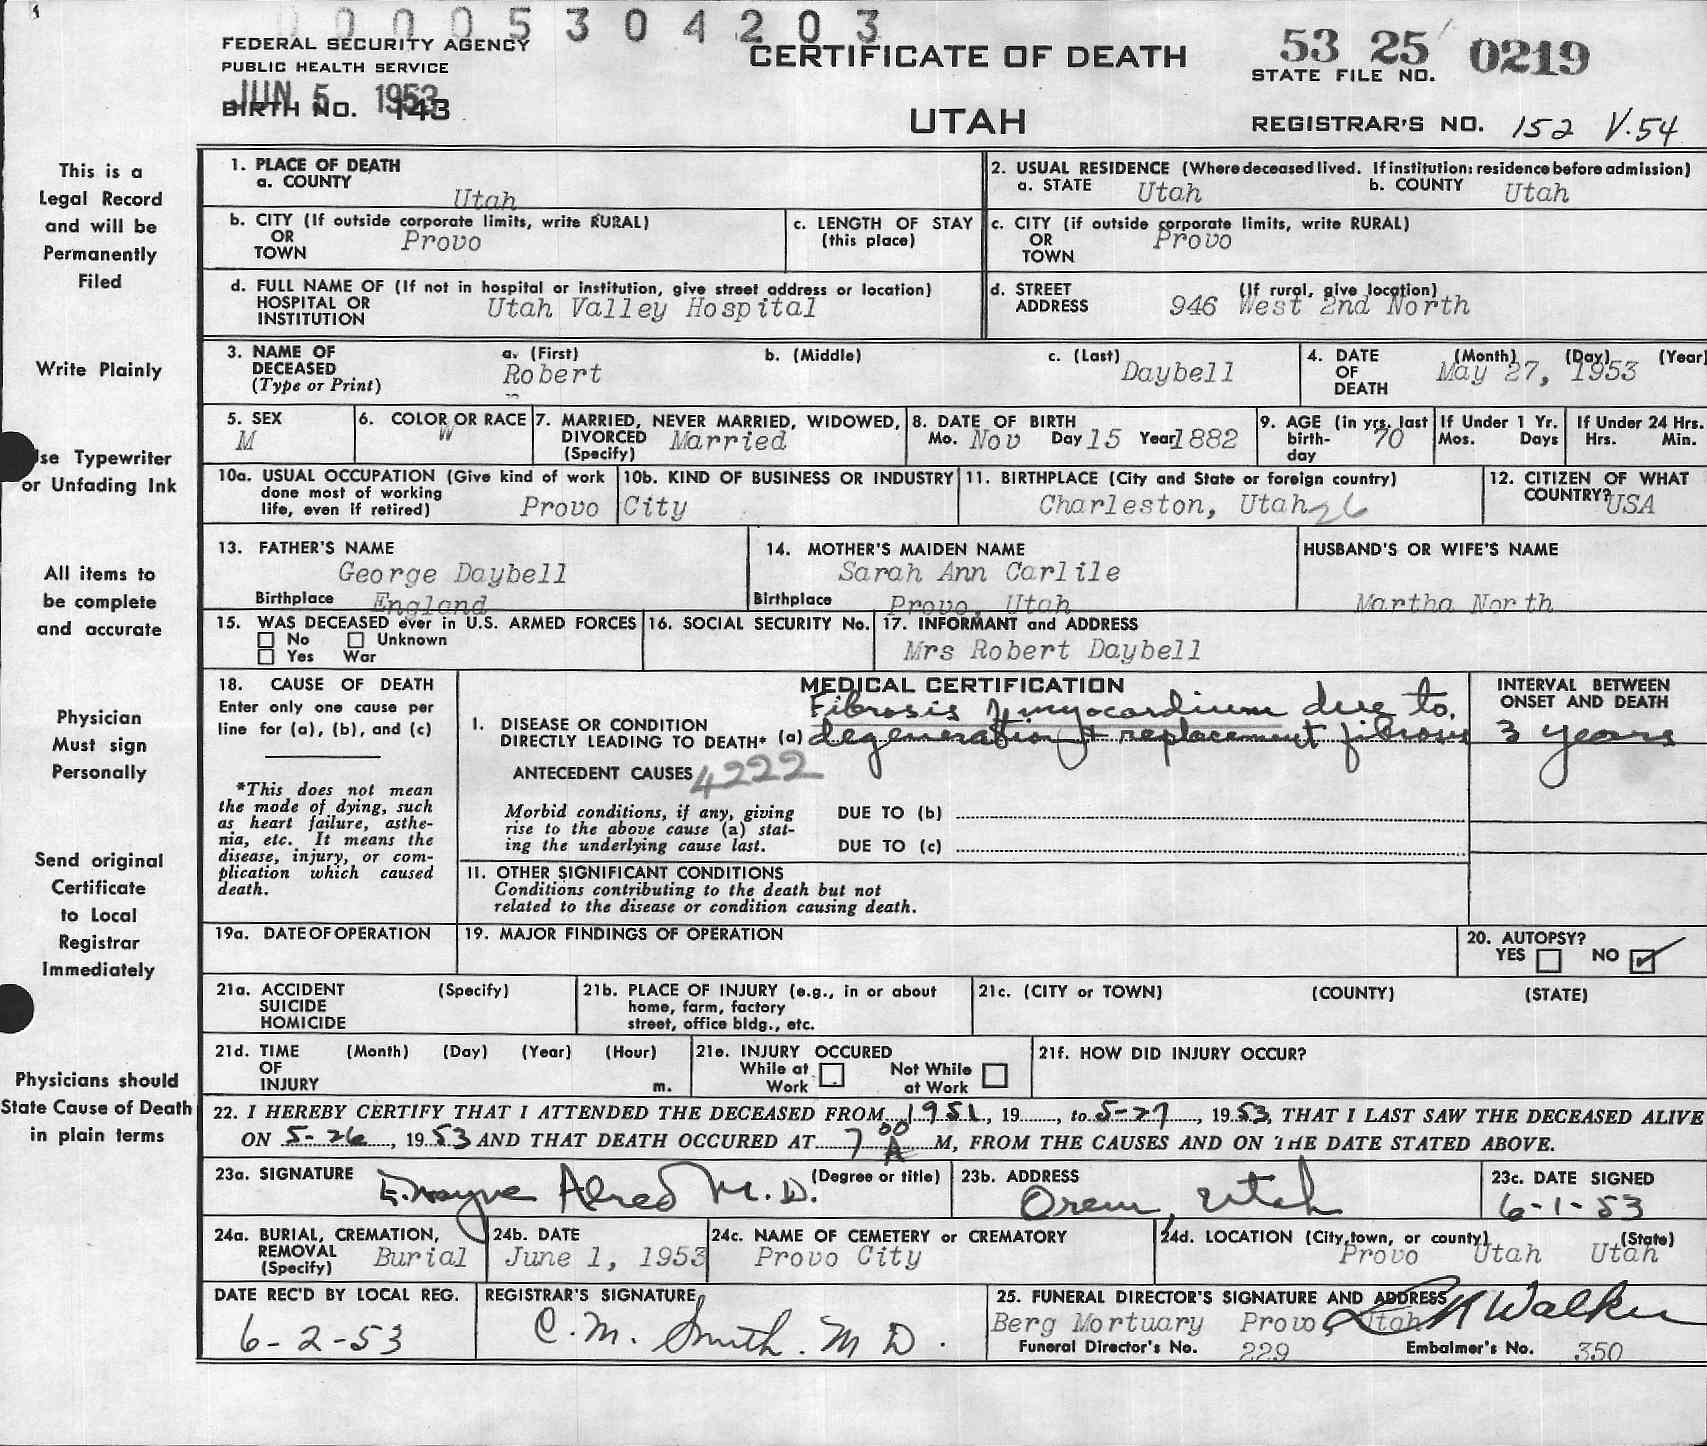 0 0 0 0 5 3 0 4 2 0 3
FEDERAL SECURITY AGENCY
PUBLIC HEALTH SERVICE
JUN 5 1953
BIRTH NO. 143
CERTIFICATE OF DEATH
UTAH
53 25 0219
STATE FILE NO.
REGISTRAR'S NO. 152 V.54
This is a
Legal Record
and will be
Permanently
Filed
Write Plainly
Use Typewriter
or Unfading Ink
All items to
be complete
and accurate
Physician
Must sign
Personally
Send original
Certificate
to Local
Registrar
Immediately
Physicians should
State Cause of Death
in plain terms
1. PLACE OF DEATH
a. COUNTY
Utah
2. USUAL RESIDENCE (Where deceased lived. If institution: residence before admission)
a. STATE Utah b. COUNTY Utah
b. CITY (If outside corporate limits, write RURAL)
OR Provo
TOWN
c. LENGTH OF STAY
(this place)
c. CITY (if outside corporate limits, write RURAL)
OR Provo
TOWN
d. FULL NAME OF (If not in hospital or institution, give street address or location)
HOSPITAL OR Utah Valley Hospital
INSTITUTION
d. STREET (If rural, give location)
ADDRESS 946 West 2nd North
3. NAME OF a. (First) b. (Middle) c. (Last)
DECEASED Robert Daybell
(Type or Print)
4. DATE (Month) (Day) (Year)
OF May 27, 1953
DEATH
5. SEX
M
6. COLOR OR RACE
W
7. MARRIED, NEVER MARRIED, WIDOWED,
DIVORCED Married
(Specify)
8. DATE OF BIRTH
Mo. Nov Day 15 Year 1882
9. AGE (in yrs. last
birth- 70
day
If Under 1 Yr.
Mos. Days
If Under 24 Hrs.
Hrs. Min.
10a. USUAL OCCUPATION (Give kind of work
done most of working
life, even if retired) Provo City
10b. KIND OF BUSINESS OR INDUSTRY
11. BIRTHPLACE (City and State or foreign country)
Charleston, Utah 26
12. CITIZEN OF WHAT
COUNTRY? USA
13. FATHER'S NAME
George Daybell
Birthplace England
14. MOTHER'S MAIDEN NAME
Sarah Ann Carlile
Birthplace Provo, Utah
HUSBAND'S OR WIFE'S NAME
Martha North
15. WAS DECEASED ever in U.S. ARMED FORCES
No Unknown
Yes War
16. SOCIAL SECURITY No.
17. INFORMANT and ADDRESS
Mrs Robert Daybell
18. CAUSE OF DEATH
Enter only one cause per
line for (a), (b), and (c)
*This does not mean
the mode of dying, such
as heart failure, asthe-
nia, etc. It means the
disease, injury, or com-
plication which caused
death.
MEDICAL CERTIFICATION
Fibrosis of myocardium due to
I. DISEASE OR CONDITION
DIRECTLY LEADING TO DEATH* (a) degeneration & replacement fibrosis
ANTECEDENT CAUSES 4222
Morbid conditions, if any, giving
rise to the above cause (a) stat-
ing the underlying cause last.
DUE TO (b)
DUE TO (c)
INTERVAL BETWEEN
ONSET AND DEATH
3 years
11. OTHER SIGNIFICANT CONDITIONS
Conditions contributing to the death but not
related to the disease or condition causing death.
19a. DATE OF OPERATION
19. MAJOR FINDINGS OF OPERATION
20. AUTOPSY?
YES NO
21a. ACCIDENT (Specify)
SUICIDE
HOMICIDE
21b. PLACE OF INJURY (e.g., in or about
home, farm, factory
street, office bldg., etc.
21c. (CITY or TOWN) (COUNTY) (STATE)
21d. TIME (Month) (Day) (Year) (Hour)
OF
INJURY m.
21e. INJURY OCCURED
While at Not While
Work at Work
21f. HOW DID INJURY OCCUR?
22. I HEREBY CERTIFY THAT I ATTENDED THE DECEASED FROM 1951, 19......, to 5-27, 1953, THAT I LAST SAW THE DECEASED ALIVE
ON 5-26, 1953 AND THAT DEATH OCCURED AT 7 00 A M, FROM THE CAUSES AND ON THE DATE STATED ABOVE.
23a. SIGNATURE (Degree or title)
E. Wayne Allred M.D.
23b. ADDRESS
Orem, Utah
23c. DATE SIGNED
6-1-53
24a. BURIAL, CREMATION,
REMOVAL Burial
(Specify)
24b. DATE
June 1, 1953
24c. NAME OF CEMETERY or CREMATORY
Provo City
24d. LOCATION (City, town, or county) (State)
Provo Utah Utah
DATE REC'D BY LOCAL REG.
6-2-53
REGISTRAR'S SIGNATURE
C.M. Smith. M D.
25. FUNERAL DIRECTOR'S SIGNATURE AND ADDRESS
Berg Mortuary Provo, Utah Walker
Funeral Director's No. 229 Embalmer's No. 350